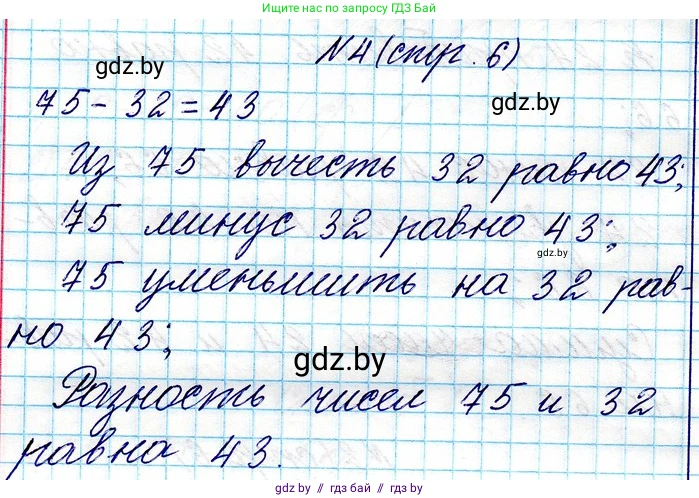 Ищите нас по запросу ГДЗ БАЙ в любом поисковике
N 4 (стр. 6)
gdz.by
gdz.by
75 - 32 = 43
Из 75 вычесть 32 равно 43;
75 минус 32 равно 43;
gdz.by
75 уменьшить на 32 рав-
но 43;
gdz.by
Разность чисел 75 и 32
равна 43.
gdz.by // гдз.бай // gdz.by